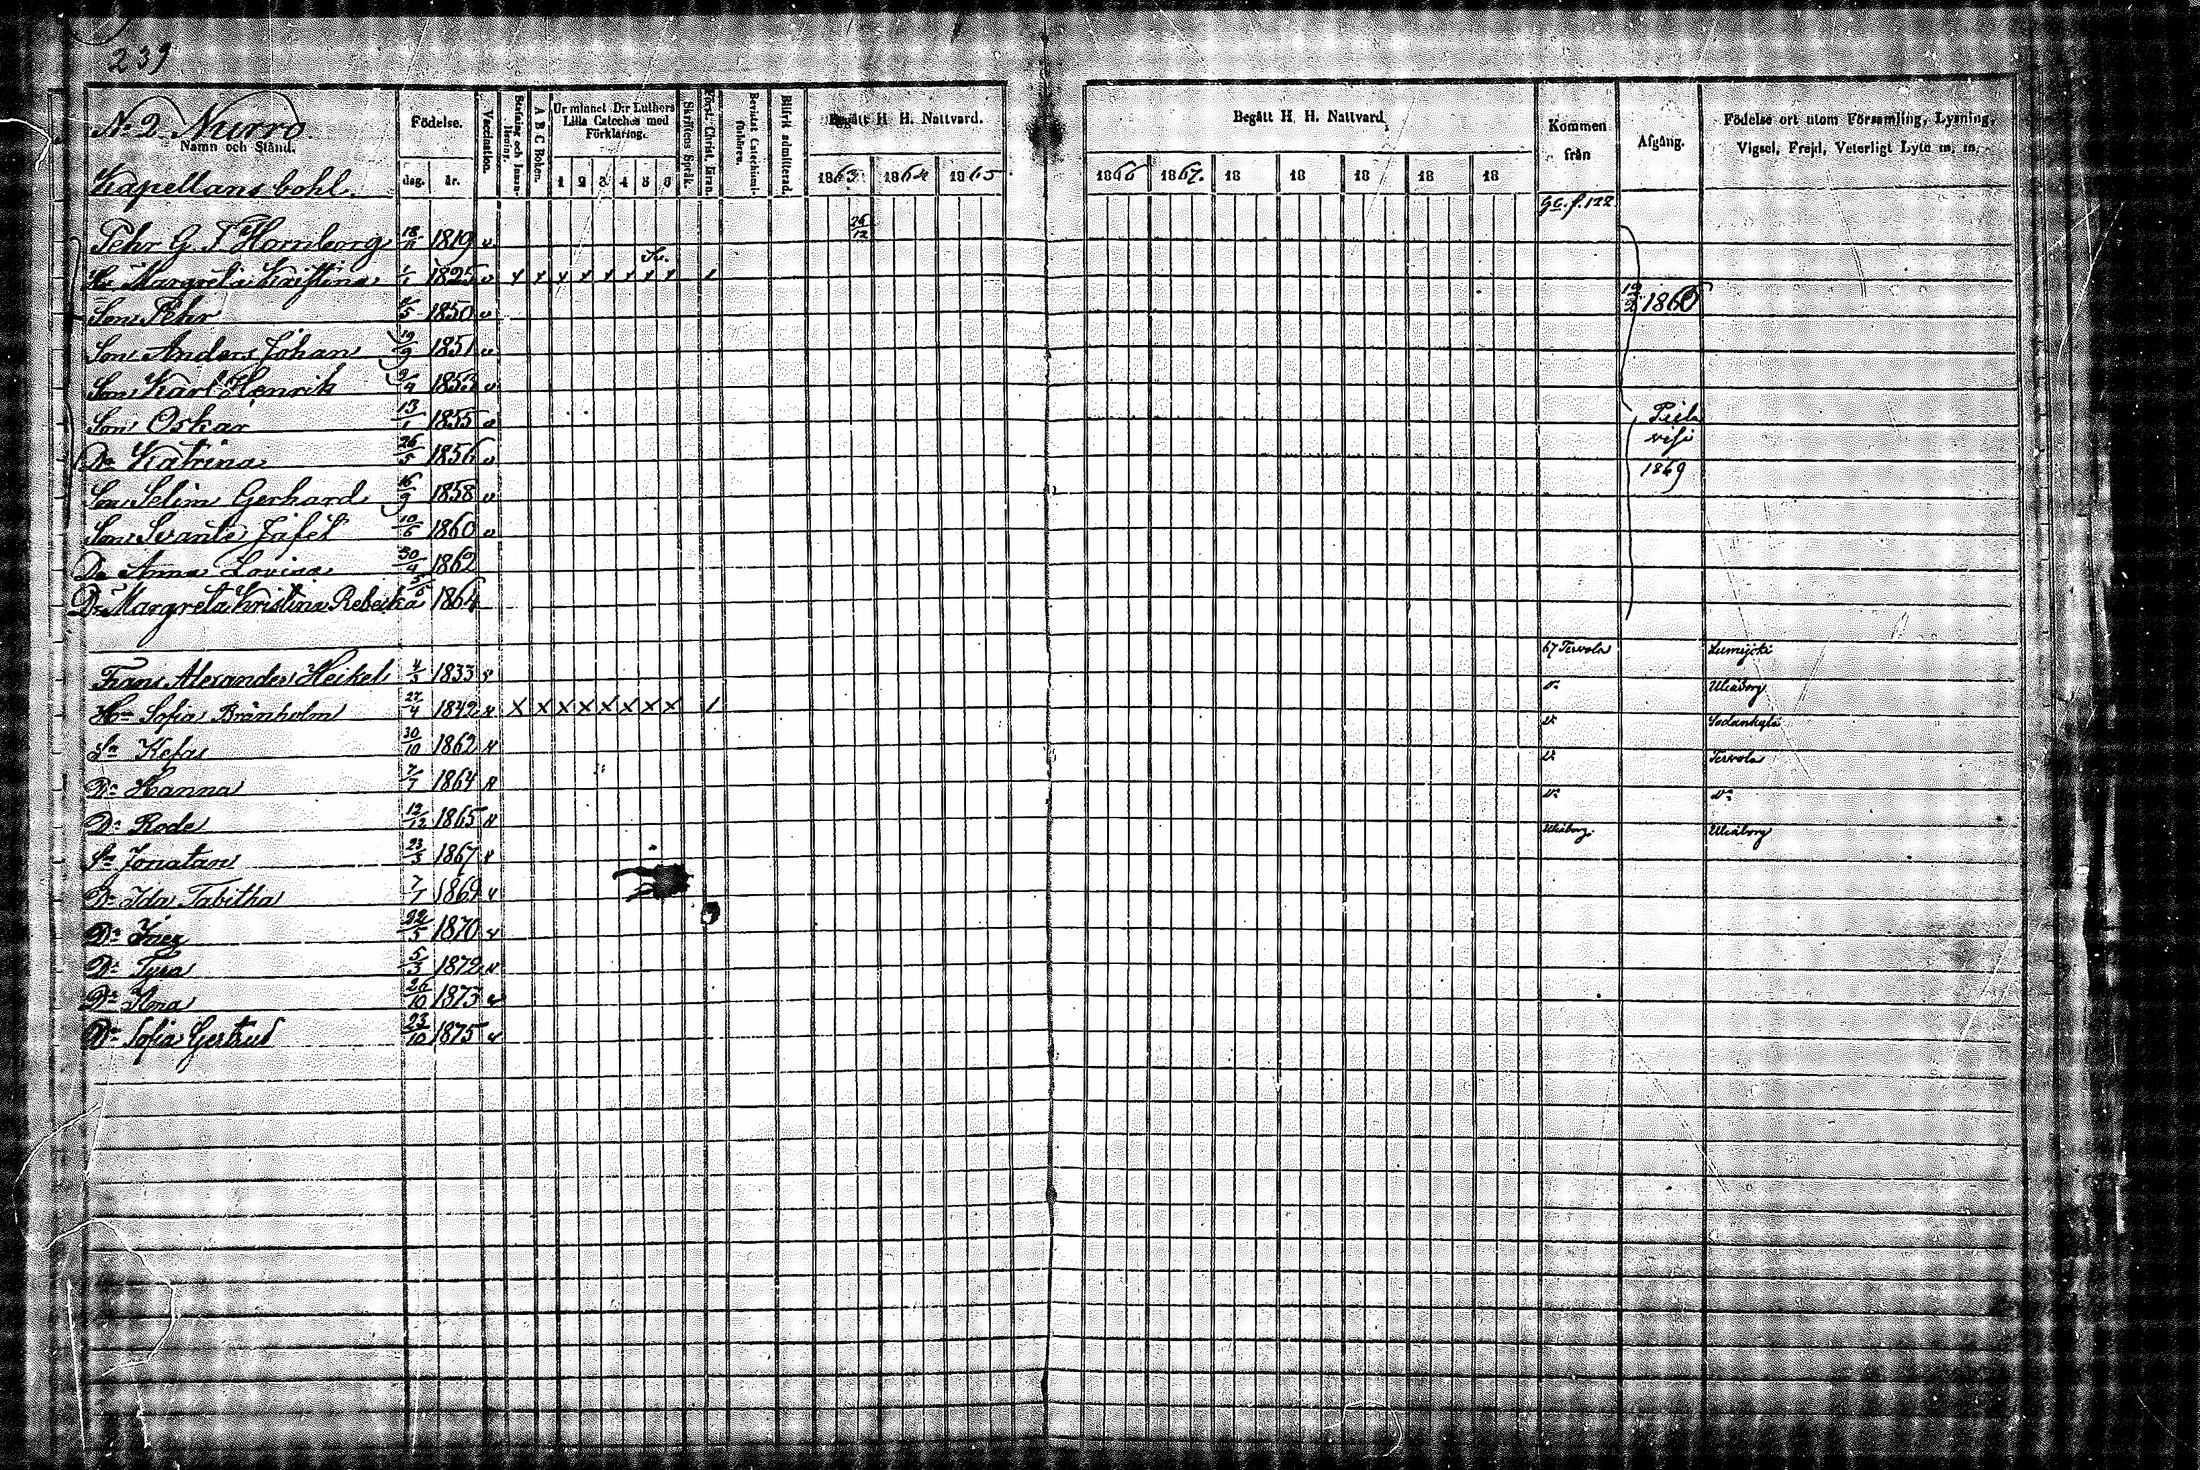 239
N:o 2 Nurro
Namn och Stånd.
Kapellans bohl.
Födelse.
dag. år.
Vaccination.
A B C Boken.
Ur minnet D:r Luthers Lilla Cateches med Förklaring.
1 2 3 4 5 6
Skriftens Språk.
Först. Christ. läran.
Blifvit admitterad.
Begått H. H. Nattvard.
1863 1864 1865
Begått H. H. Nattvard.
1866 1867. 18 18 18 18 18
Kommen från
Afgång.
Födelse ort utom Församling, Lysning, Vigsel, Frejd, Veterligt Lyte m. m.
Ga. f. 122
Pehr G. T Hornborg 18/11 1819 v 26/12
Hu Margreta Kristina 1/1 1825 v x x x x x x x x 1
Son Pehr 1850 v 12/2 1860
Son Anders Johan 19/9 1851 v
Son Karl Henrik 9/9 1853 v
Son Oskar 13/1 1855 v Piela
D:r Katrina 26/5 1856 v visi
Son Selim Gerhard 16/9 1858 v 1869
Son Svante Jafet 10/6 1860 v
Dr Anna Lovisa 30/4 1862
Dr Margreta Kristina Rebecka 5/5 1864
Frans Alexander Heikel 4/3 1833 v 67 Tervola Lumijoki
H:u Sofia Bränholm 27/4 1842 v X X X X X X X X 1 d:o Uleåborg
S:n Kefas 30/10 1862 v d:o Sodankylä
D:r Hanna 7/7 1864 v d:o Tervola
D:r Rode 12/12 1865 v d:o d:o
S:n Jonatan 23/3 1867 v Uleåborg Uleåborg
D:r Ida Tabitha 7/1 1869 v
D:r Inez 22/5 1870 v
D:r Tyra 5/3 1872 v
D:r Ilona 26/10 1873 v
D:r Sofia Gertrud 23/10 1875 v